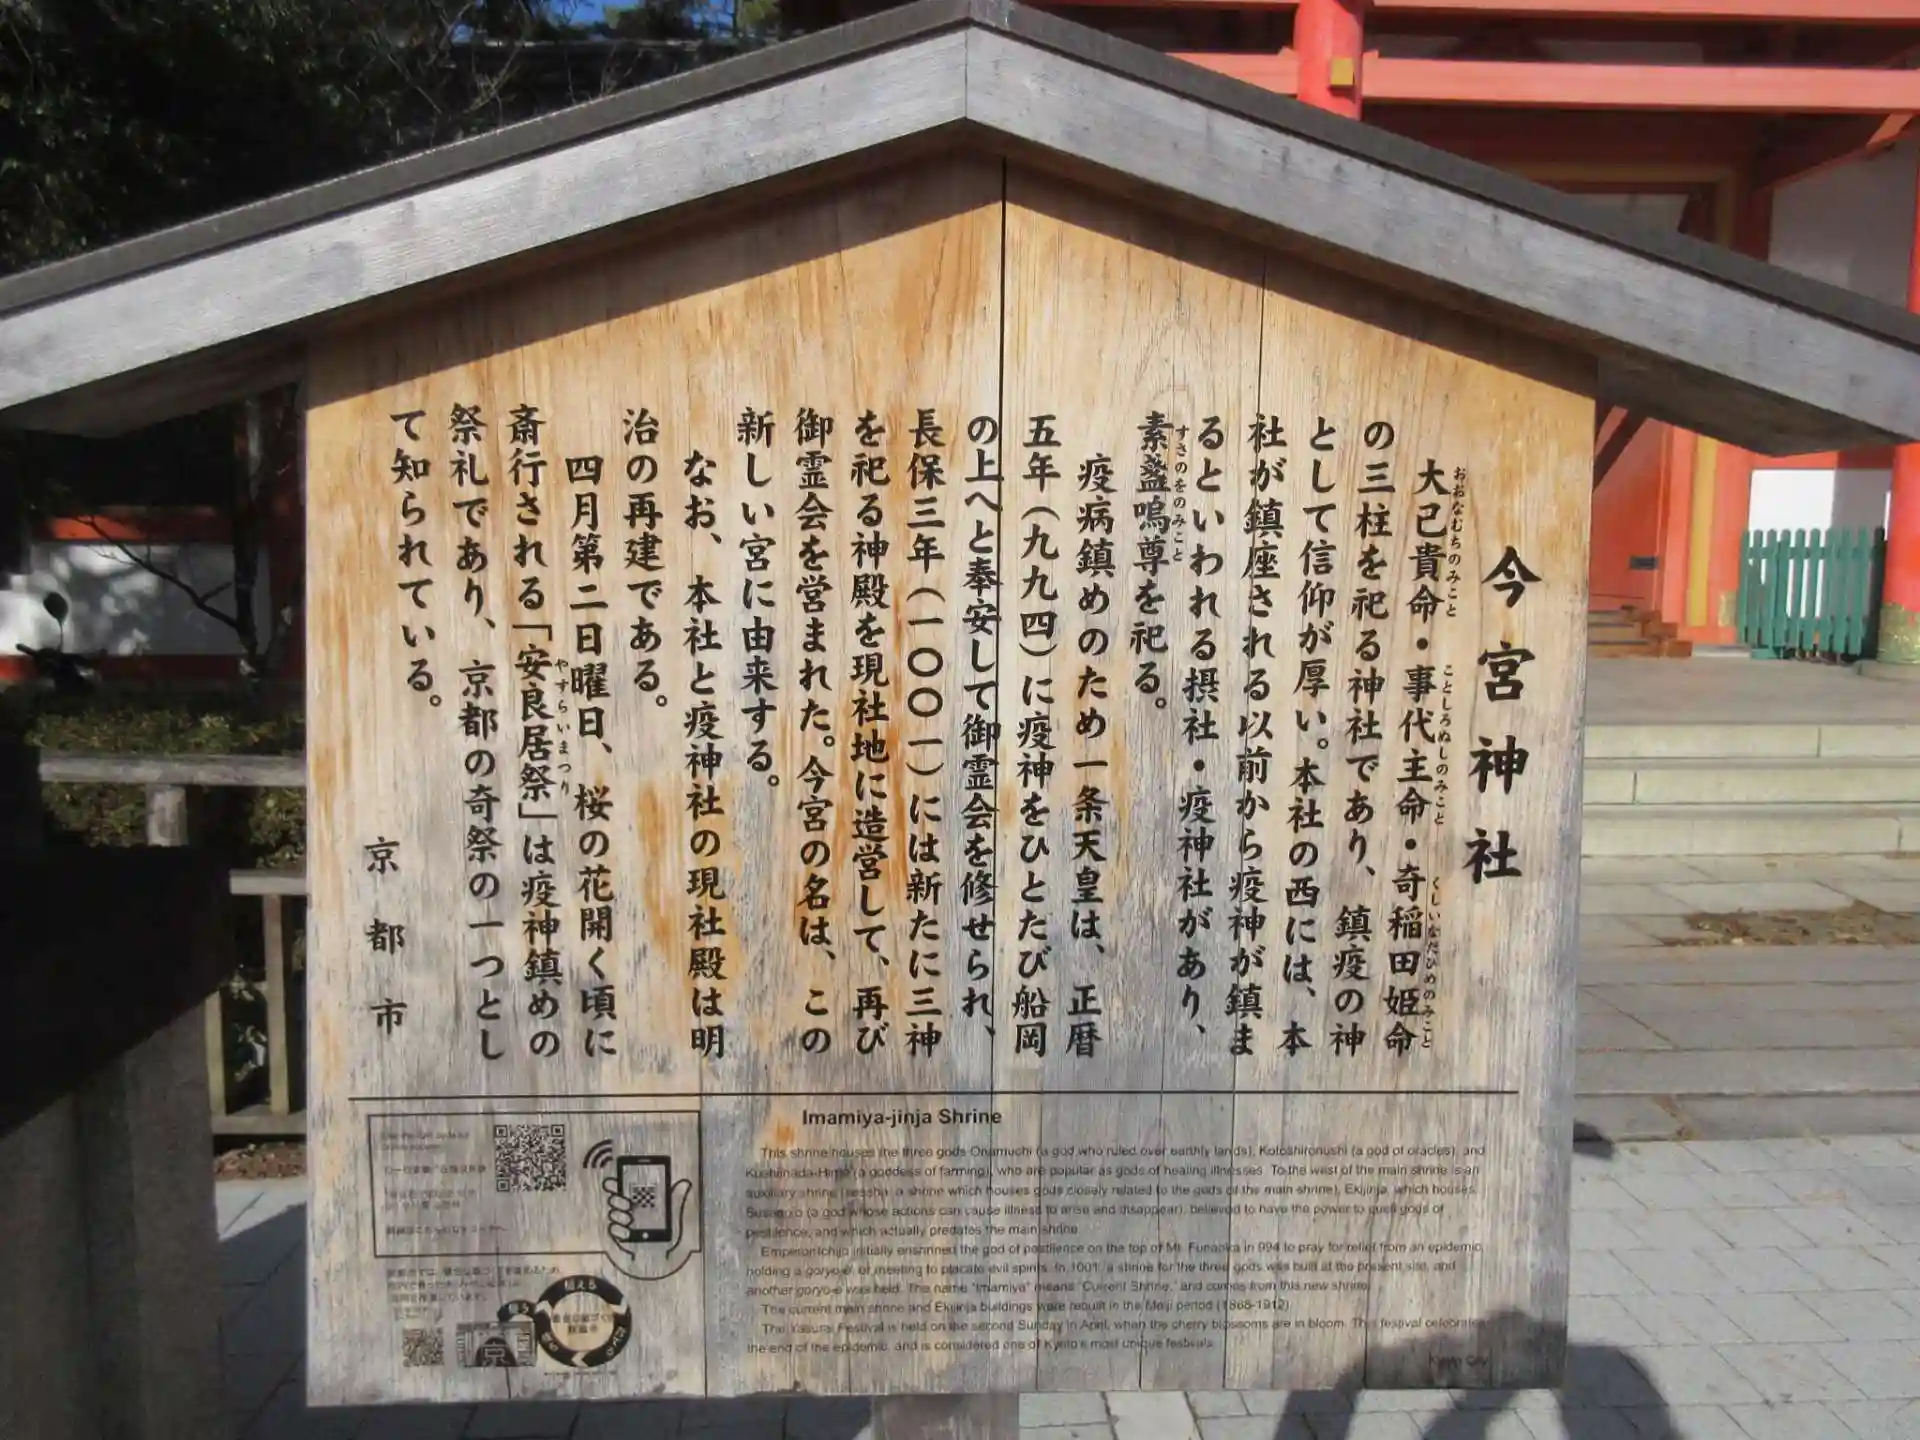 今宮神社
大己貴命・事代主命・奇稲田姫命
おおなむちのみこと ことしろぬしのみこと くしいなだひめのみこと
の三柱を祀る神社であり、鎮疫の神
として信仰が厚い。本社の西には、本
社が鎮座される以前から疫神が鎮ま
るといわれる摂社・疫神社があり、
素盞嗚尊を祀る。
すさのをのみこと
疫病鎮めのため一条天皇は、正暦
五年(九九四)に疫神をひとたび船岡
の上へと奉安して御霊会を修せられ、
長保三年(一〇〇一)には新たに三神
を祀る神殿を現社地に造営して、再び
御霊会を営まれた。今宮の名は、この
新しい宮に由来する。
なお、本社と疫神社の現社殿は明
治の再建である。
四月第二日曜日、桜の花開く頃に
斎行される「安良居祭」は疫神鎮めの
やすらいまつり
祭礼であり、京都の奇祭の一つとし
て知られている。
京都市
Imamiya-jinja Shrine
This shrine houses the three gods Onamuchi (a god who ruled over earthly lands), Kotoshironushi (a god of oracles), and
Kushiinada-Hime (a goddess of farming), who are popular as gods of healing illnesses. To the west of the main shrine is an
auxiliary shrine (sessha: a shrine which houses gods closely related to the gods of the main shrine), Ekijinja, which houses
Susanoo (a god whose actions can cause illness to arise and disappear), believed to have the power to quell gods of
pestilence, and which actually predates the main shrine.
Emperor Ichijo initially enshrined the god of pestilence on the top of Mt. Funaoka in 994 to pray for relief from an epidemic,
holding a goryo-e, or meeting to placate evil spirits. In 1001, a shrine for the three gods was built at the present site, and
another goryo-e was held. The name "Imamiya" means "Current Shrine," and comes from this new shrine.
The current main shrine and Ekijinja buildings were rebuilt in the Meiji period (1868-1912).
The Yasurai Festival is held on the second Sunday in April, when the cherry blossoms are in bloom. This festival celebrates
the end of the epidemic, and is considered one of Kyoto's most unique festivals.
Kyoto City
植える
京